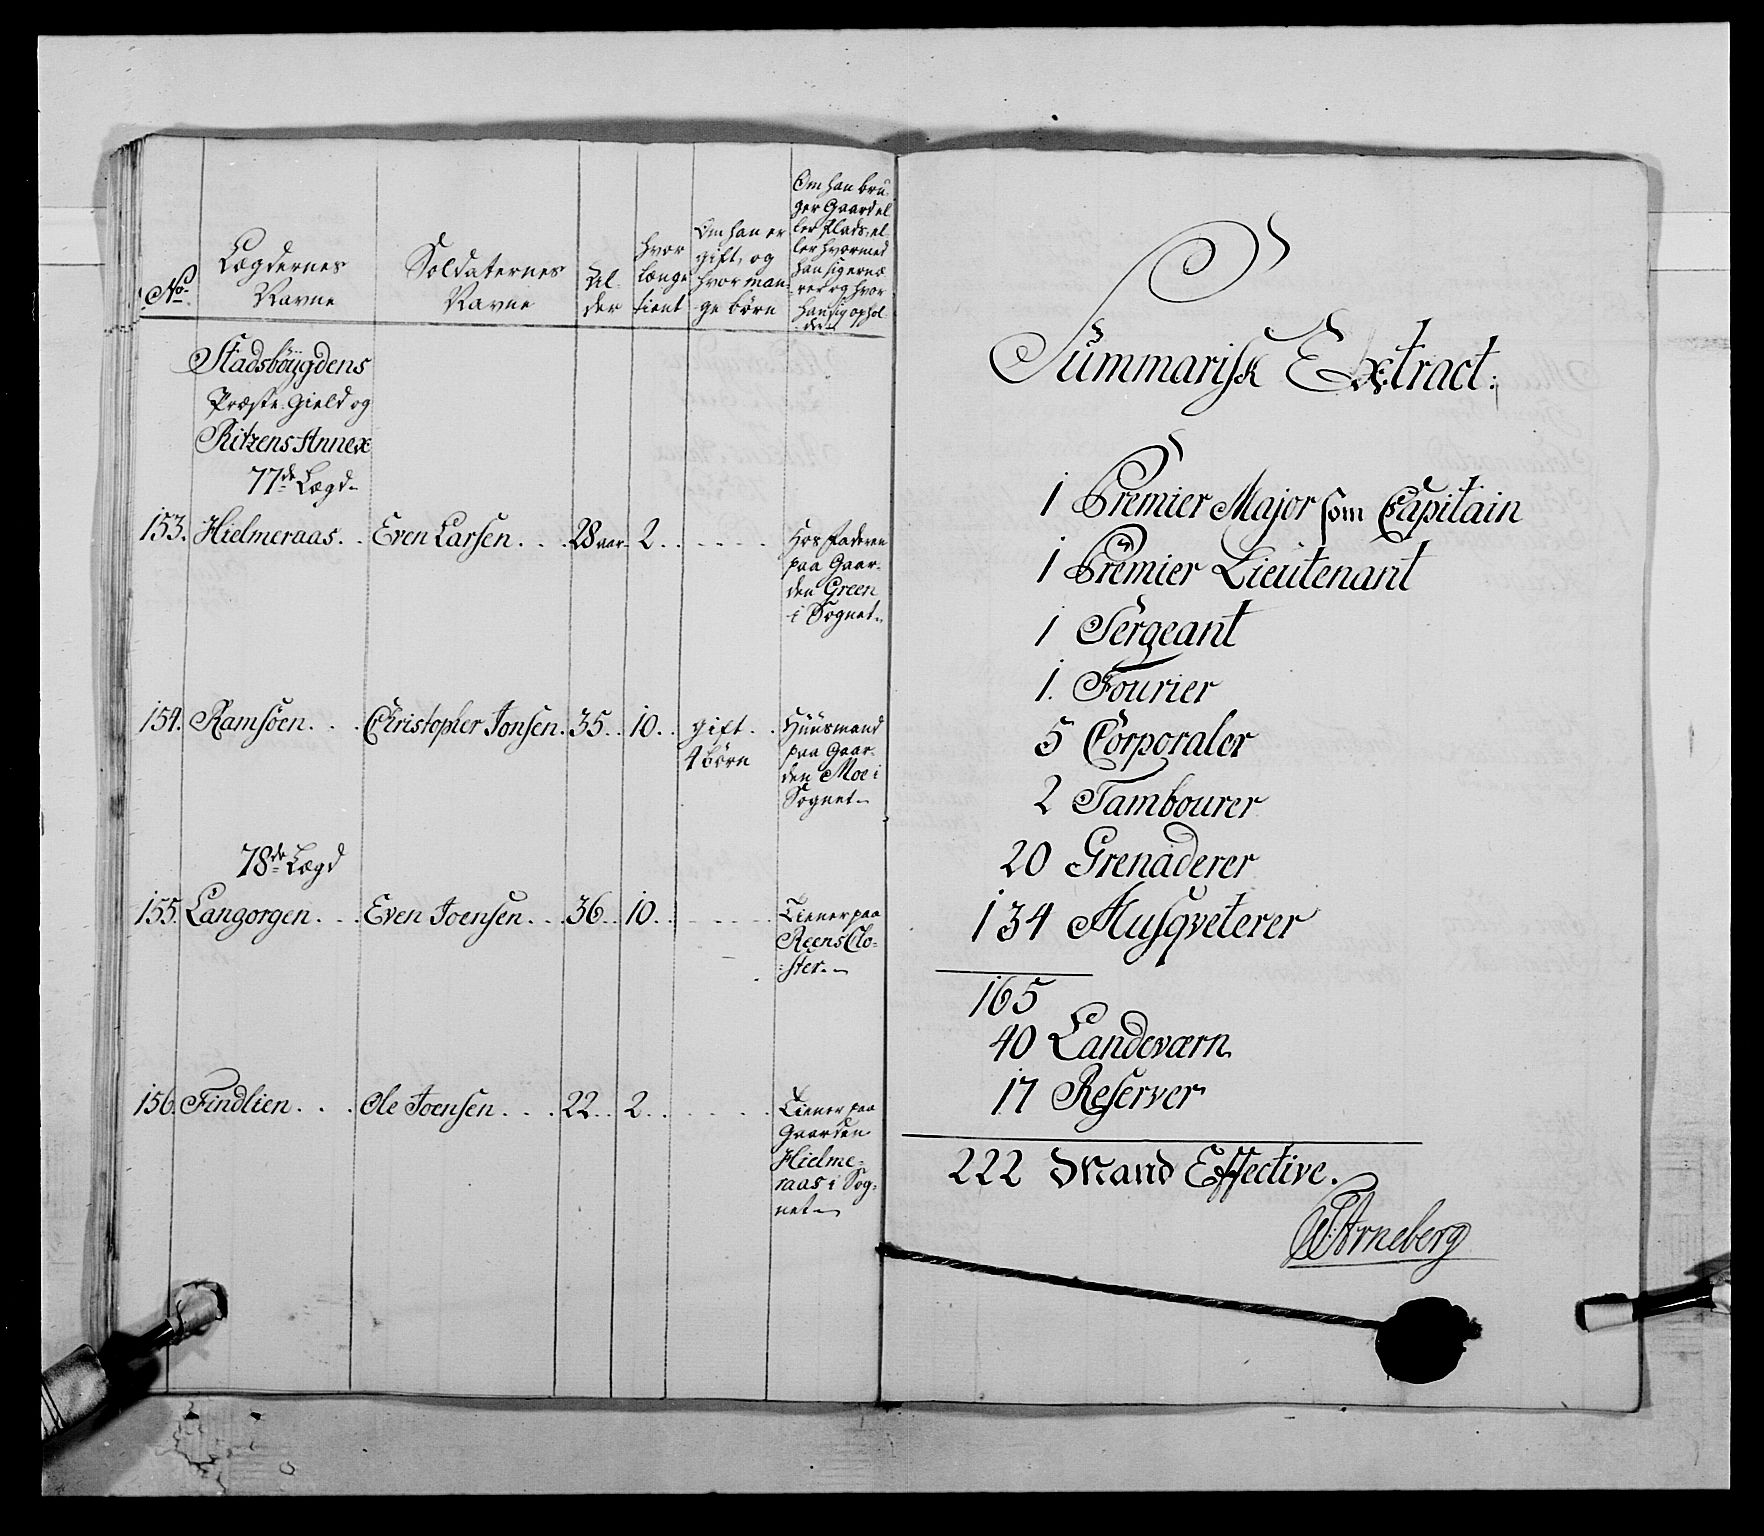 No.
Lægdernes
Navne
Soldaternes
Navne
Al-
der
hvor
længe
tient
Om han er
gift, og
hvor man-
ge børn
Om han bru-
ger Gaard el-
ler Plads, el-
ler hvormed
han sig ernæ-
rer og hvor
han sig ophol-
der
Stadsbøygdens
Præste-Gield og
Ritzens Annex
77de Lægd
153. Hielmeraas. . Even Larsen. . . 28 aar. 2. . - - - -
Hos Faderen
paa Gaar-
den Green
i Sognet
154. Ramsöen. . . Christopher Jonsen. 35. . 10. . gift. .
4 börn
Huusmand
paa Gaar-
den Moe i
Sognet
78de Lægd
155. Langorgen. . . Even Joensen. . . 36. . 10. . - - - -
Tiener paa
Reens Clo-
ster.
156. Findlien. . . Ole Joensen. . . 22. . 2. . . . . .
Tiener paa
Gaarden
Hielme-
raas i Sog-
net
Summarisk Extract:
1 Premier Major som Capitain
1 Premier Lieutenant
1 Sergeant
1. Fourier
5 Corporaler
2 Tambourer
20 Grenaderer
134 Musqveterer
165
40 Landeværn
17 Reserver
222 Mand Effective.
Arneberg